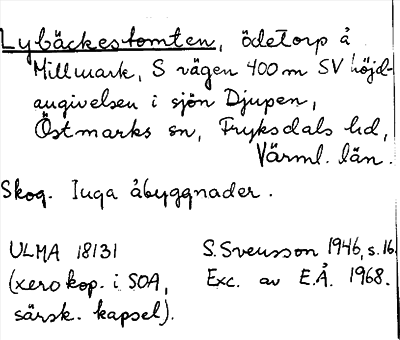 Lybäckestomten, ödetorp å
Millmark, S vägen 400 m SV höjd-
angivelsen i sjön Djupen,
Östmarks sn, Fryksdals hd,
Värml. län.
Skog. Inga åbyggnader.
ULMA 18131
(xerokop. i SOA,
särsk. kapsel).
S. Svensson 1946, s. 16.
Exc. av E.Å. 1968.